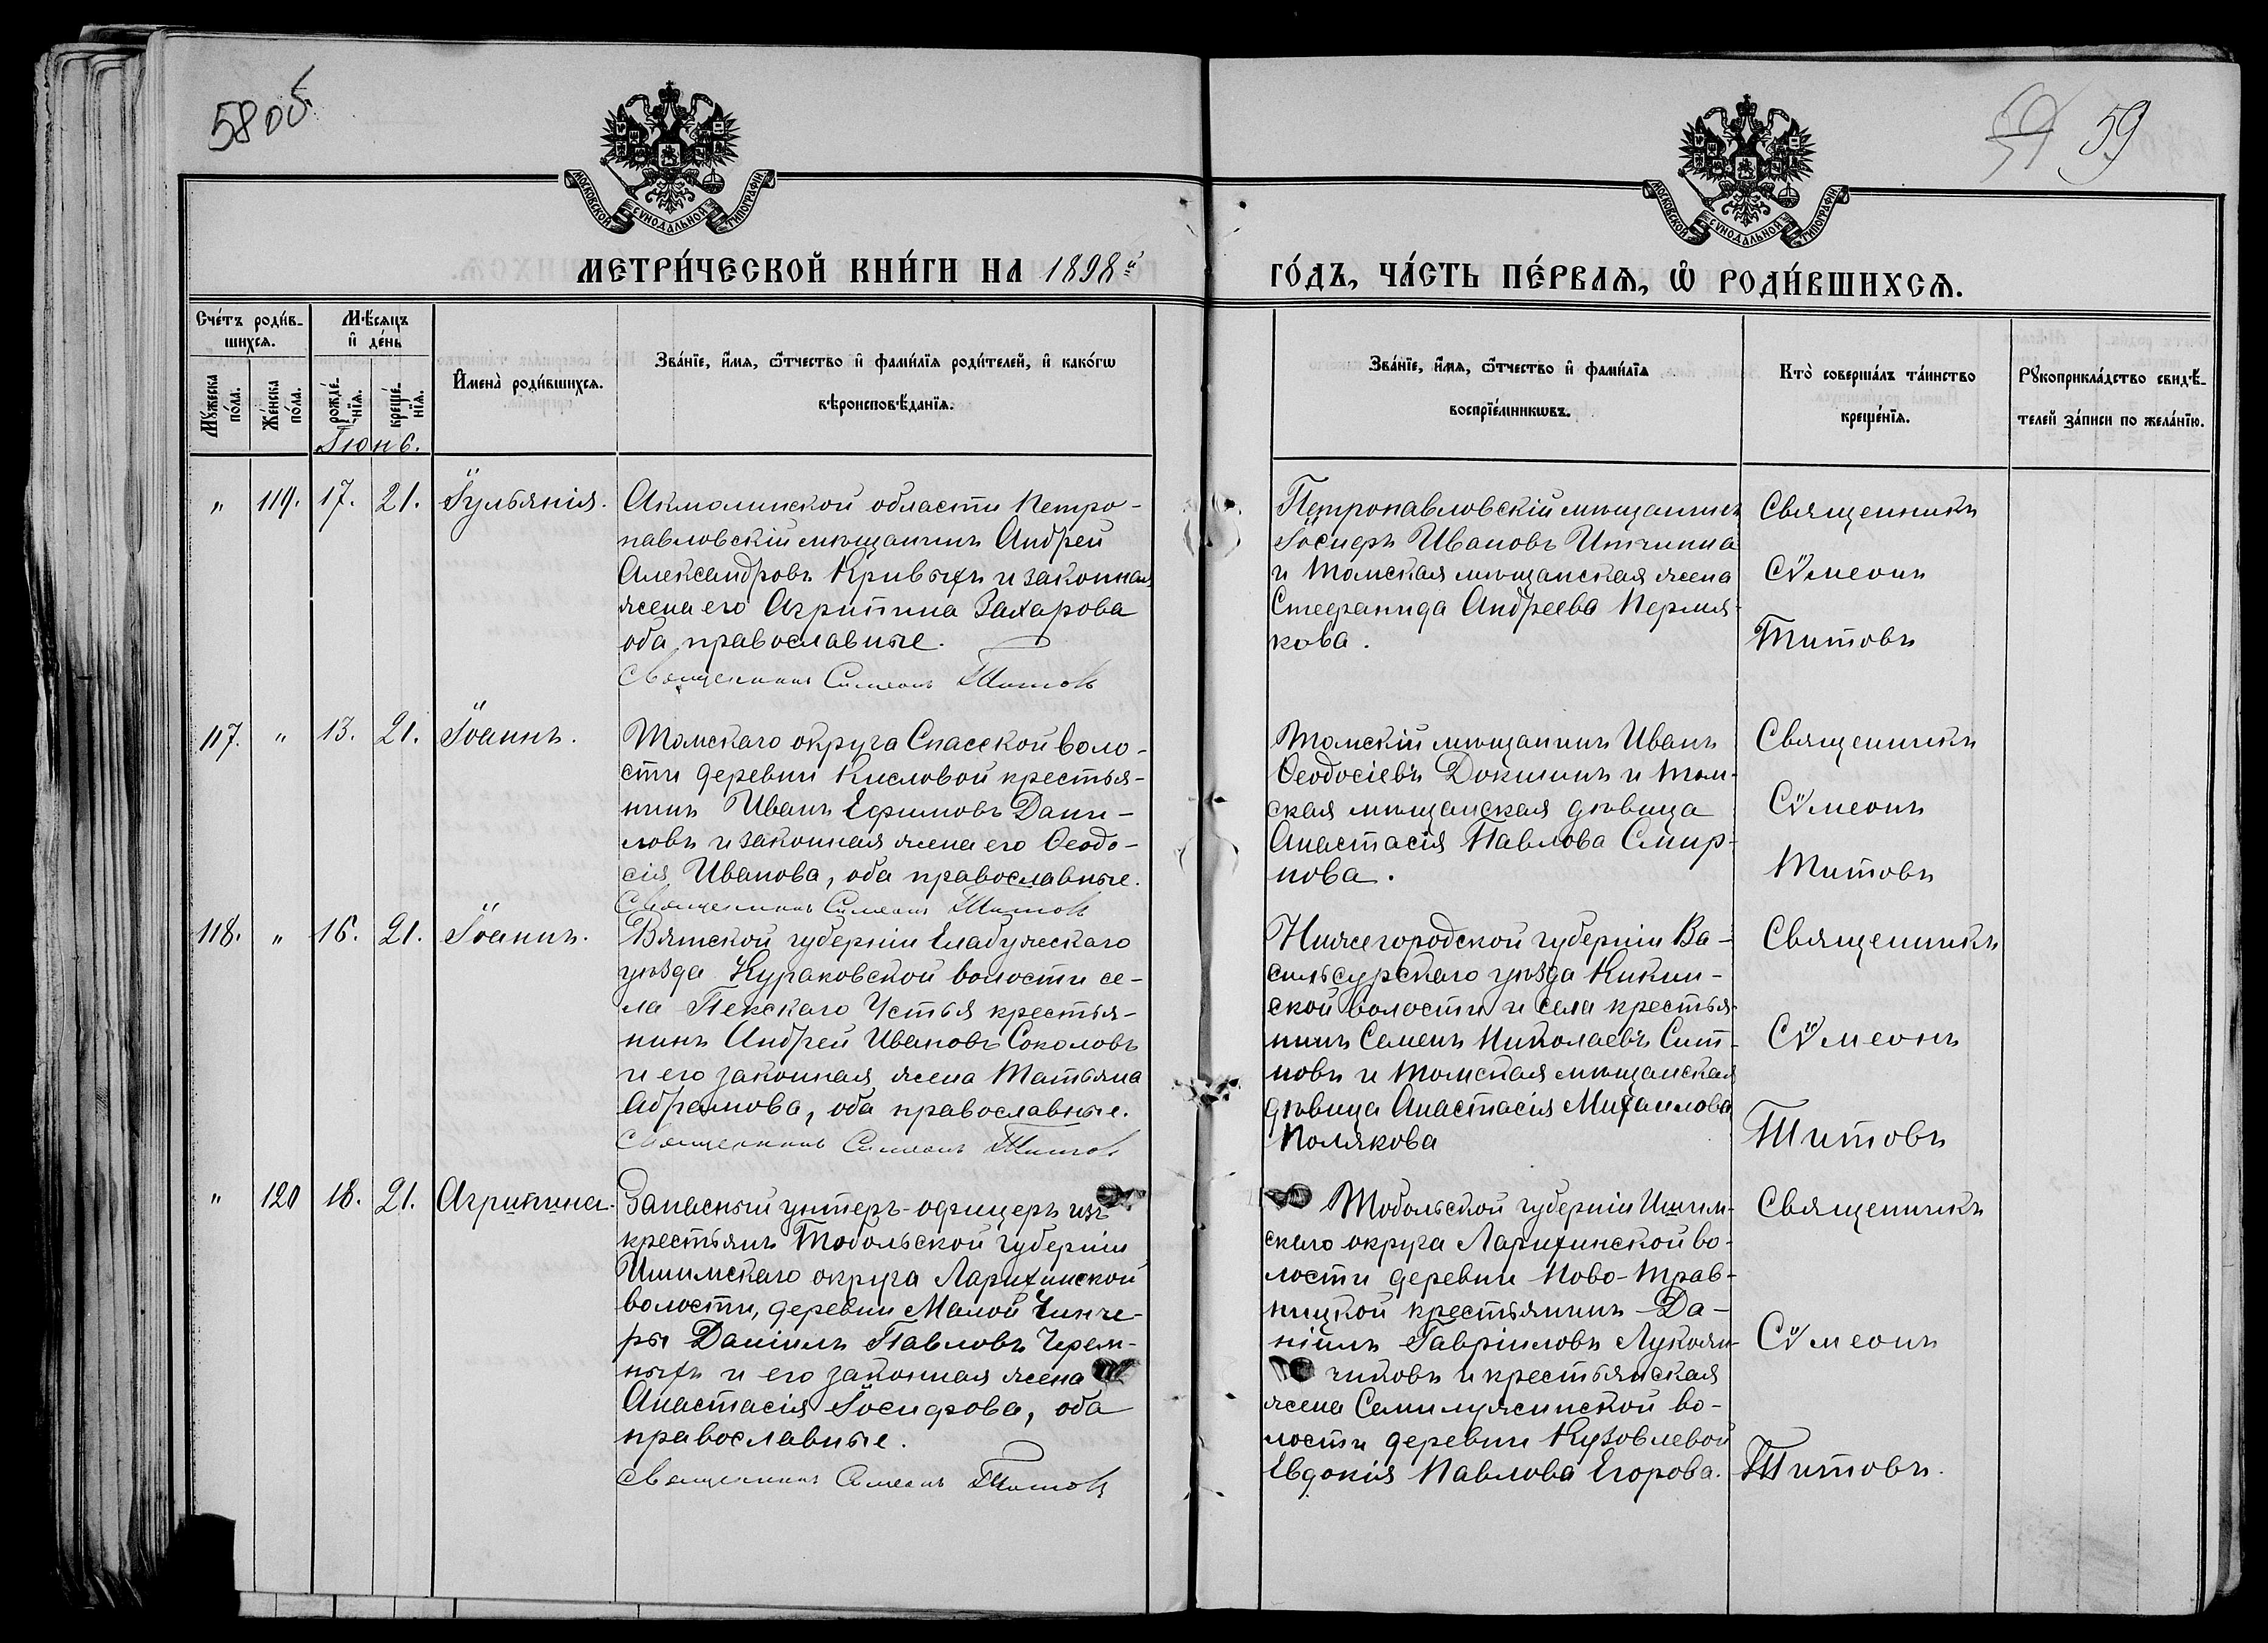 58 об.
59
МОСКОВСКОЙ СѴНОДАЛЬНОЙ ТИПОГРАФІИ
МОСКОВСКОЙ СѴНОДАЛЬНОЙ ТИПОГРАФІИ
МЕТРИ́ЧЕСКОЙ КНИ́ГИ НА 1898й
ГО́ДЪ, ЧА́СТЬ ПЕ́РВАѦ, Ѡ҆ РОДИ́ВШИХСѦ.
Сче́тъ роди́в-
шихсѧ.
Мꙋжеска по́ла.
Же́нска по́ла.
Мѣ́сѧцъ
и҆ де́нь
рожде́-
нїѧ.
креще́-
нїѧ.
Іюнь.
И҆мена̀ роди́вшихсѧ.
Зва́нїе, и҆́мѧ, ѻ҆́тчество и҆ фами́лїѧ роди́телей, и҆ како́гѡ
вѣроисповѣ́данїѧ.
Зва́нїе, и҆́мѧ, ѻ҆́тчество и҆ фами́лїѧ
воспрїе́мникѡвъ.
Кто̀ соверша́лъ та́инство
креще́нїѧ.
Рꙋкоприкла́дство свидѣ́-
телей за́писи по жела́нїю.
„ 119. 17. 21. Іульянія.
Акмолинской области Петро-
павловскій мѣщанинъ Андрей
Александровъ Кривыхъ и законная
жена его Агрипина Захарова
оба православные.
Священникъ Симеонъ Титовъ
Петропавловскій мѣщанинъ
Іосифъ Ивановъ
и Томская мѣщанская жена
Стефанида Андреева Пермя-
кова.
Священникъ
Сѵмеонъ
Титовъ
117. „ 13. 21. Іоаннъ.
Томскаго округа Спасской воло-
сти деревни Кисловой крестья-
нинъ Иванъ Ефимовъ Дани-
ловъ и законная жена его Ѳеодо-
сія Иванова, оба православные.
Священникъ Симеонъ Титовъ
Томскій мѣщанинъ Иванъ
Ѳеодосіевъ Докинъ и Том-
ская мѣщанская дѣвица
Анастасія Павлова Смир-
нова.
Священникъ
Сѵмеонъ
Титовъ
118. „ 16. 21. Іоаннъ.
Вятской губерніи Елабужскаго
уѣзда Кураковской волости се-
ла Пекскаго Устья крестья-
нинъ Андрей Ивановъ Соколовъ
и его законная жена Татьяна
Абрамова, оба православные.
Священникъ Симеонъ Титовъ
Нижегородской губерніи Ва-
сильсурскаго уѣзда
ской волости и села крестья-
нинъ Семенъ Николаевъ Сит-
новъ и Томская мѣщанская
дѣвица Анастасія Михаилова
Полякова
Священникъ
Сѵмеонъ
Титовъ
„ 120 18. 21. Агрипина.
Запасный унтеръ-офицеръ изъ
крестьянъ Тобольской губерніи
Ишимскаго округа Ларихинской
волости, деревни Малой Чинче-
ры Даніилъ Павловъ Черем-
ныхъ и его законная жена
Анастасія Іосифова, оба
православные.
Священникъ Симеонъ Титовъ
Тобольской губерніи Ишим-
скаго округа Ларихинской во-
лости деревни Ново-Трав-
ницкой крестьянинъ Да-
ніилъ Гавріиловъ Лукоян-
чиковъ и крестьянская
жена Семилужинской во-
лости деревни Кузовлевой
Евдокія Павлова Егорова.
Священникъ
Сѵмеонъ
Титовъ.